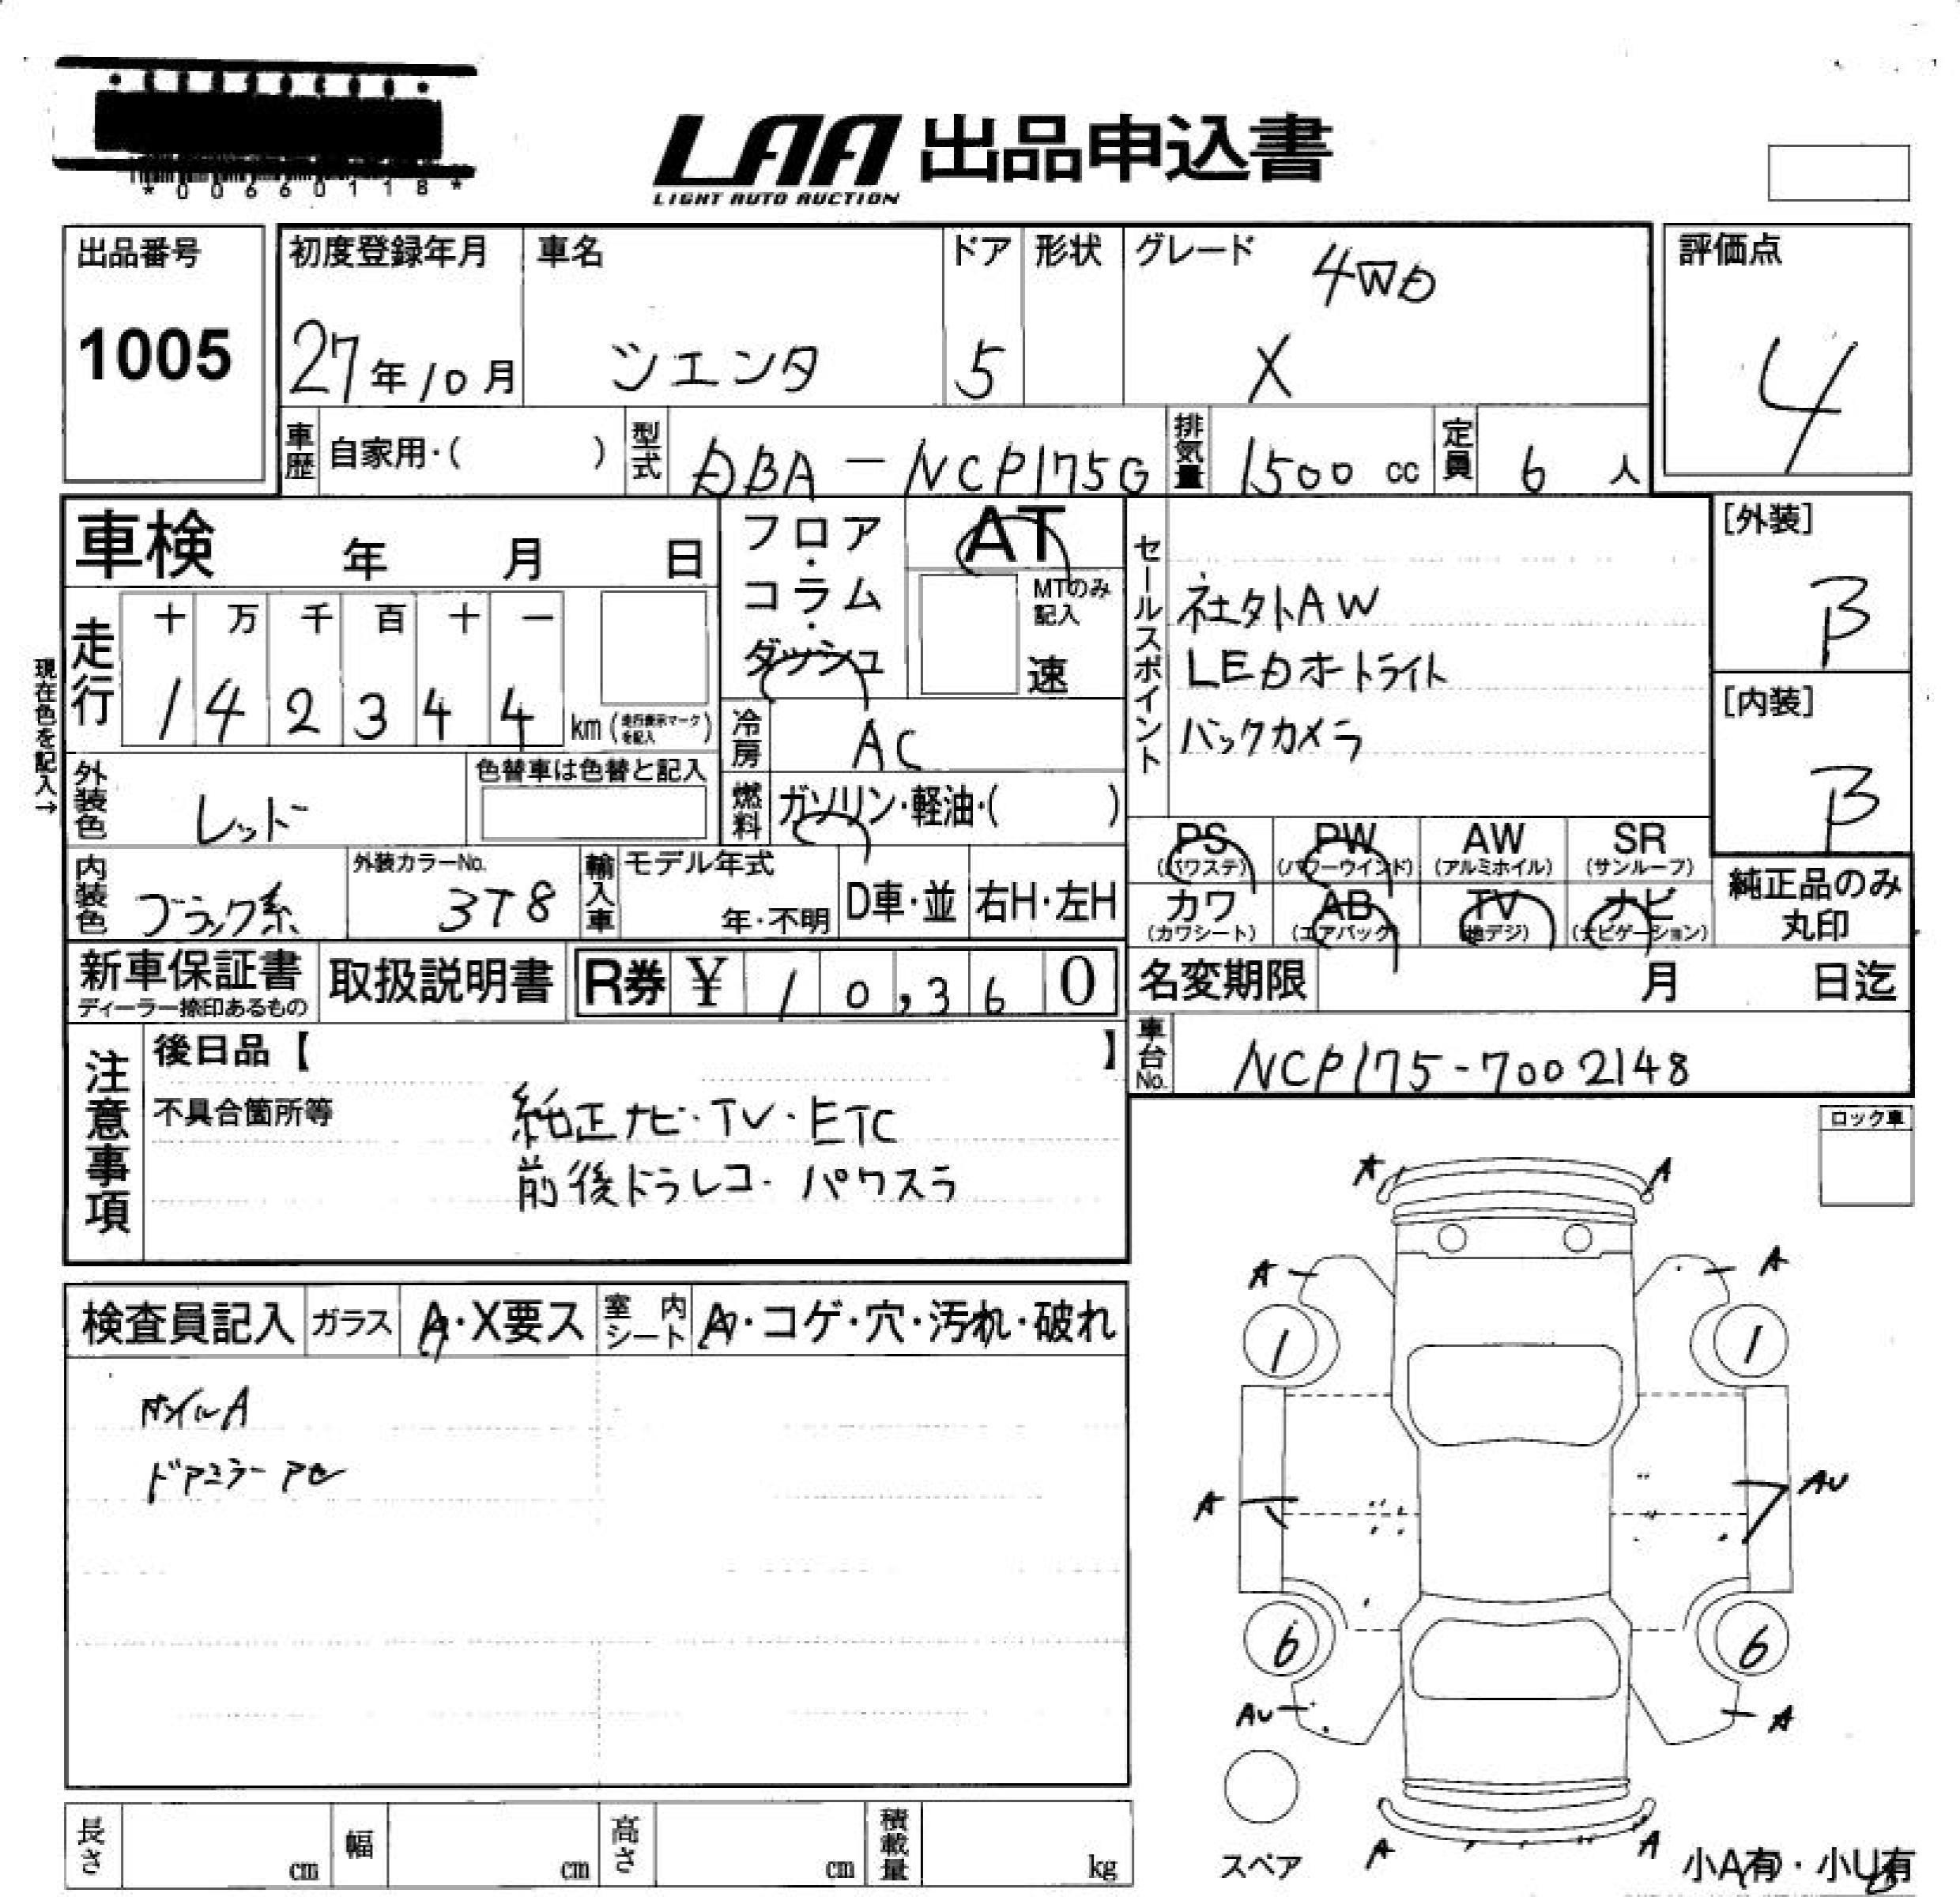 *00660118*
LAA 出品申込書
LIGHT AUTO AUCTION
出品番号
1005
初度登録年月
27年10月
車名
シエンタ
ドア
5
形状
グレード
4WD
X
評価点
4
車歴
自家用・( )
型式
DBA-NCP175G
排気量
1500 cc
定員
6 人
車検 年 月 日
フロア・コラム・ダッシュ
AT
MTのみ記入
速
走行
十 万 千 百 十 一
1 4 2 3 4 4 km (走行表示マークを記入)
現在色を記入→
冷房
AC
外装色
レッド
色替車は色替と記入
燃料
ガソリン・軽油・( )
内装色
ブラック系
外装カラーNo.
3T8
輸入車
モデル年式
年・不明
D車・並
右H・左H
セールスポイント
社外AW
LEDオートライト
バックカメラ
[外装]
B
[内装]
B
PS (パワステ)
PW (パワーウインド)
AW (アルミホイル)
SR (サンルーフ)
カワ (カワシート)
AB (エアバック)
TV (地デジ)
ナビ (ナビゲーション)
純正品のみ丸印
新車保証書
ディーラー捺印あるもの
取扱説明書
R券 ¥ 10,360
名変期限 月 日迄
車台No.
NCP175-7002148
注意事項
後日品【 】
不具合箇所等
純正ナビ・TV・ETC
前後ドラレコ・パワスラ
ロック車
検査員記入
ガラス
A・X要ス
室内シート
A・コゲ・穴・汚れ・破れ
ホイルA
ドアミラー
A A
A A
1 1
A AU
6 6
AU A
スペア
A A
小A有・小U有
長さ cm
幅 cm
高さ cm
積載量 kg